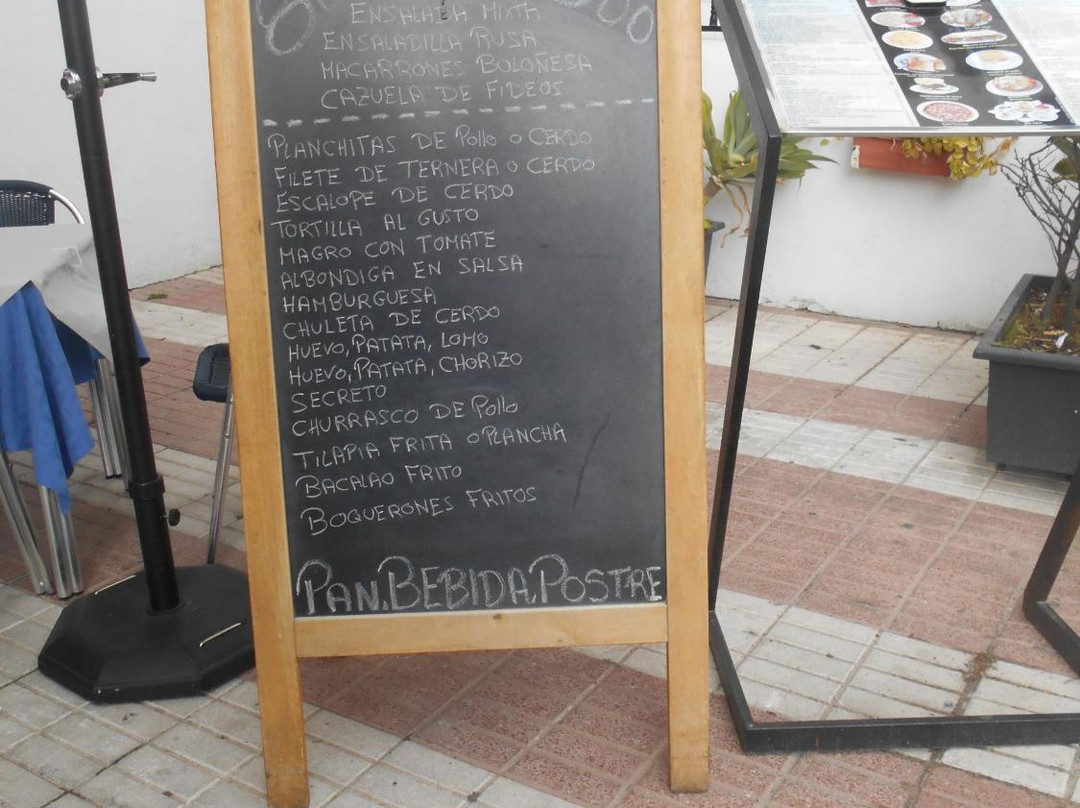 ENSALADA MIXTA
ENSALADILLA RUSA
MACARRONES BOLOÑESA
CAZUELA DE FIDEOS
PLANCHITAS DE Pollo O CERDO
FILETE DE TERNERA O CERDO
ESCALOPE DE CERDO
TORTILLA AL GUSTO
MAGRO CON TOMATE
ALBONDIGA EN SALSA
HAMBURGUESA
CHULETA DE CERDO
HUEVO, PATATA, LOMO
HUEVO, PATATA, CHORIZO
SECRETO
CHURRASCO DE Pollo
TILAPIA FRITA O PLANCHA
BACALAO FRITO
BOQUERONES FRITOS
PAN, BEBIDA, POSTRE